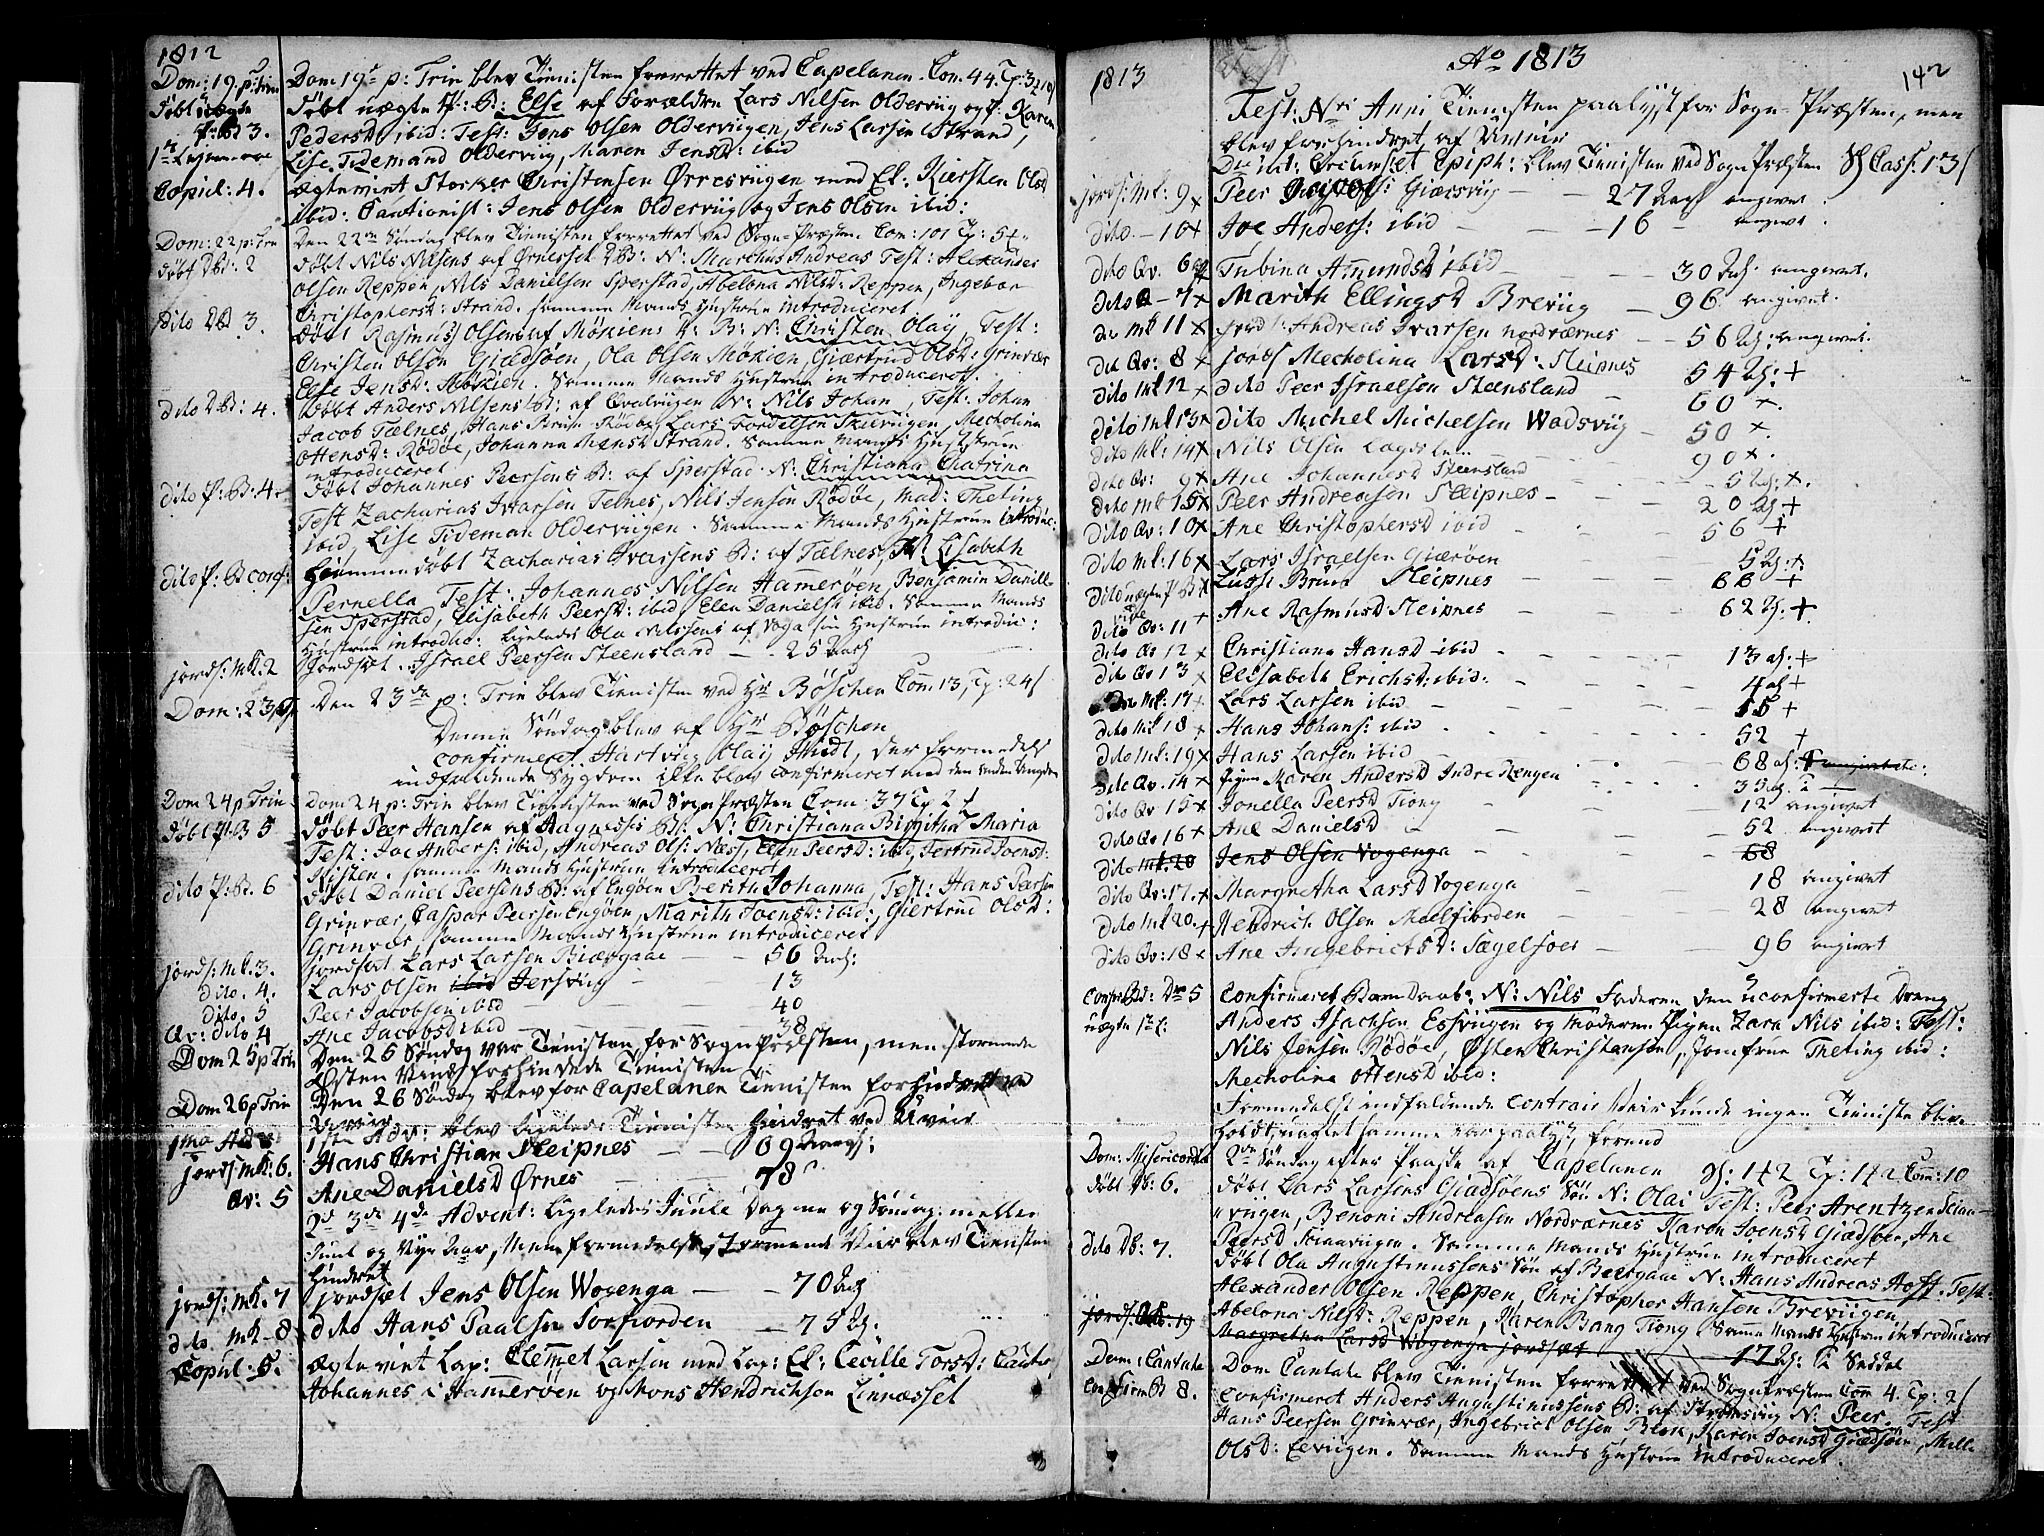 1812
Dom: 19. p: Trin Dom 19de p: Trin blev Tienisten forrettet ved Capelanen. Com. 44. Tp: 3
Döbt uægte P: Bd 3. Döbt uægte P: B: Else af Foræld&re Lars Nilsen Olderviig og P. Karen
Pedersd ibid: Test: Jens Olsen Olderviigen, Jens Larsen Strand,
Lise Tidemand Olderviig, Maren Jensd: ibid
Copul: 4. Ægteviet Storker Christensen Ørresviigen med E: Kiersten Olsd
ibid: Cautionist: Jens Olsen Olderviig og Jens Olsen ibid:
Dom: 22 p: Trin Den 22de Söndag blev Tienisten forrettet ved Sogne-Præsten Com: 101 Tp: 5
Döbt Db: 2 Döbt Nils Nilsens af Ørnesset Db: N: Marchus Andreas Test: Alexander
Olsen Reppen, Nils Danielsen Sperstad, Abelona Nilsd: Reppen, Ingebor
Christophersd: Strand. samme Mands Hustrue introduceret
Dito Db 3. Döbt Rasmus Olsens af Mökiens D: B: N: Christen Olay, Test:
Christen Olsen Giædsöen, Ola Olsen Mökien, Giærtrud Olsd: Grinvær
Else Jensd: Mökien. Samme Mands Hustrue introduceret.
Dito Db: 4. Döbt Anders Nilsens B: af Qvalviigen N: Nils Johan, Test: Johan
Jacob Tælnes, Hans Lars Tordelsen Skieviigen, Mecholina
Ottensd: Rödöe, Johanna Strand. Samme Mands Hustrue
introduceret
Dito P: B: 4 Döbt Johannes Peersens B: af Sperstad. N: Christiana Chatrina
Test Zacharias Ivarsen Telnes, Nils Jensen Rödöe, Mad: Theting
ibid, Lise Tideman Olderviigen. Samme Mands Hustrue introduc:
Dito P: B conf: Hiemmedöbt Zacharias Ivarsens B: af Tælnes, N: Lisabeth
Pernella Test: Johannes Nilsen Hamerøen, Benjamin Daniel
sen Sperstad, Elisabeth Peersd: ibid Elen Danielsd ibid. Samme Mands
Hustrue introduc: Ligeledes Ola Nilssens af Voga sin Hustrue introduc:
jords: Mk. 2 Jordsat. Israel Peersen Steensland — 25 Aar
Dom: 23 p: Den 23de p: Trin blev Tienisten ved Hr Böschen Com: 13, Tp: 24
Denne Söndag blev af Hr Böschen
confirmeret Hartvig Olaij, der formedelst
indfaldende Sygdom ikke blev confirmeret med den anden Ungdom
Dom 24 p Trin Dom 24 p: Trin blev Tienisten ved Sogne Præsten Com: 37 Tp 2
Döbt P: B 5 Döbt Peer Hansen af Aagnesses B: N: Christiana Birgitha Maria
Test: Joe Anders: ibid, Andreas Ols: Næss, Elen Peersd: ibid, Jertrud Joensd:
Histen. samme Mands Hustrue introduceret
Dito P: B. 6 Döbt Daniel Peersens B: af Engöen Berith Johanna, Test: Hans Peersen
Grinvær, Caspar Peersen Engöen, Marith Joensd: ibid:, Giertrud Olsd:
Grinvær, samme Mands Hustrue introduceret
jords: Mk. 3. jordsat Lars Larsen Biærgaae — 56 Aar:
dito. 4. Lars Olsen ibid Jersviig — 13
dito. 5 Peer Jacobsen ibid — 40
Qv: dito 4 Ane Jacobsd ibid — 38
Dom 25 p Trin Den 25 Söndag var Tienisten for Sogn Præsten, men stormende
Østen Vind forhindrede Tienisten
Dom 26 p Trin Den 26 Söndag blev for Capelanen Tienisten forhindret ved
Uveier
1ma Adv: 1ste Adv: blev ligeledes Tienisten hindret ved Uveir
jords mk: 6. Hans Christian Sleipnes — 69 Aar:
Qv: 5 Ane Danielsd Ørnes — 78
2d 3de 4de Advent: Ligeledes Juule Dagene og Söndag mellem
Juul og Nye Aar, Men formedelst stormende Veir blev Tienisten
hindret
jords: mk. 7 jordsat Jens Olsen Wogenga — 70 Aar
dito mk. 8 dito Hans Paalsen Sorfiorden — 75 A:
Copul. 5. Ægteviet Lap: Clemet Larsen med Lap: E: Ceville Torsd: Cautio
Johannes i Hamerøen og Mons Hendrichsen Linnæsset
1813
Ao 1813
142
Fest: Nvi Anni Tienisten paalyst for Sogne-Præsten, men
blev forhindret af Uveier
Epiph: blev Tienisten ved Sogn Præsten
jords: Mk: 9 x Peer Giærsviig — 27 Aar angivet.
dito — 10 x Joe Anders: ibid — 16 — angivet
dito Qv. 6 Tubina Amundsd ibid — 30 A: angivet.
dito Q — 7 x Marith Ellingsd Breviig — 96 angivet.
do Mk 11 x jords: Andreas Ivarsen nordværnes — 56 A: angivet.
dito Qv: 8 x jords Mecholina Larsd: Sleipnes 54 A: +
dito Mk 12 x dito Peer Israelsen Steensland — 60 x.
dito Mk 13 x dito Michel Michelsen Wadsviig — 50 x.
dito Mk: 14 x Nils Olsen — 90 x.
dito Qv: 9 x Ane Johannesd Steensland — 5 A: x.
dito Mk 15 x Peer Andreasen Sleipnes — 20 A: +
dito Qv: 10 x Ane Christophersd ibid — 56 +
dito Mk: 16 x Lars Israelsen Giærøen — 5 A: +
dito uægte P B x Lussi Bruun Sleipnes — 66 +
dito Qv: 11 + Ane Rasmusd Sleipnes — 62 A: +
dito Qv 12 x Christiana Hansd ibid — 13 A: +
dito Qv 13 x Elisabeth Erichsd: ibid: — 4 A +
do Mk: 17 + Lars Larsen ibid — 55 +
dito Mk 18 x Hans Johans: ibid — 52 +
dito Mk: 19 x Hans Larsen ibid — 68 A:
dito Qv. 14 x Pigen Maren Andersd Indre Rengen — 35 A:
dito Qv 15 x Jonella Peersd Tiong — 12 angivet
dito Qv 16 x Ane Danielsd — 52 angivet
dito Mk. 20 Jens Olsen Vogenga — 68
dito Qv: 17. x Margretha Larsd Vogenga — 18 angivet
dito Mk 20. + Hendrich Olsen Meelfiorden — 28 angivet
dito Qv: 18 x Ane Ingebrictsd: Sægelfoes — 96 angivet
Conf: Bd: Dr 5 Confirmeret Barn Daab: N: Nils Faderen den uconfirmerte Dreng
uægte Anders Isachsen Essviigen og Moderen Pigen Zara Nils ibid: Test:
Nils Jensen Rödöe, Østen Christensen, Jomfrue Theting ibid:
Mecholina Ottensd ibid:
Formedelst indfaldende Contrair Veir kunde ingen Tieniste blive
holdt, uagtet samme var paalyst, forend
Dom: Misericordia 2den Söndag efter Paaske af Capelanen 142 Tp: 142 Com: 10
Döbt Db: 6. Döbt Lars Larsens Giædsöens Sön N: Olai Test: Peer Arentzen
viigen, Benoni Andreasen Nordværnes Karen Joensd Giædsöen, Ane
Peersd. Samme Mands Hustrue introduceret
Dito Db: 7. Döbt Ola Augustinussens Sön af Beergaae N: Hans Andreas Hoff. Test:
Alexander Olsen Reppen, Christopher Hansen Breviigen,
Abelona Nilsd: Reppen, Karen Bang Tiong. Samme Mands Hustrue introduceret
jords: Qv: 19 Margretha Larsd Vogenga jordsat — 17 A: Seddel
Dom: Cantate Dom Cantate blev Tienisten forrettet ved Sogn Præsten Com 4. Tp: 2
Confirm B 8. Confirmeret Anders Augustinussens B: af Strömsviig N: Peer, Test
Hans Peersen Grinvær, Ingebrict Olsen Blok, Karen Joensd Giædsöen, Mille
Olsd: Eeviigen. Samme Mands Hustrue introduceret.